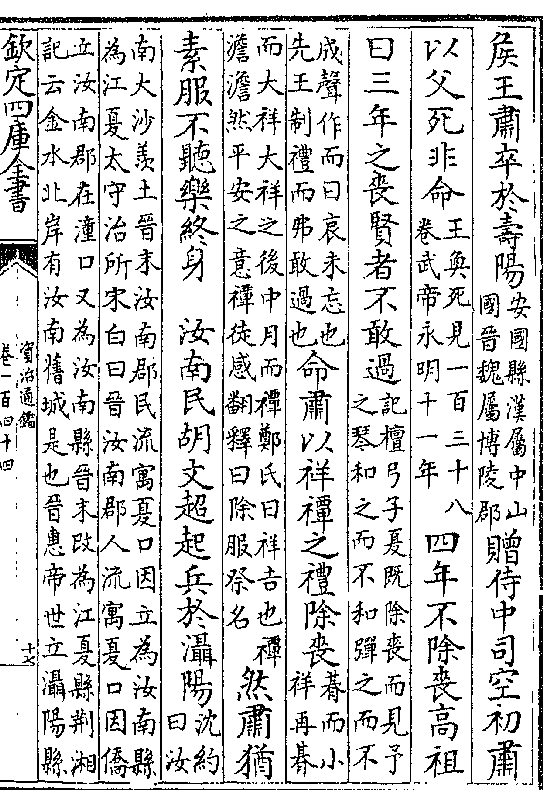 侯王肅卒於壽陽安國縣漢屬中山
國晉魏屬博陵郡贈侍中司空初肅
以父死非命王奐死見一百三十八
卷武帝永明十一年四年不除喪高祖
曰三年之喪賢者不敢過記檀弓子夏既除喪而見予
之琴和之而不和彈之而不
成聲作而曰哀未忘也
先王制禮而弗敢過也命肅以祥禫之禮除喪朞而小
祥再朞
而大祥大祥之後中月而禫鄭氏曰祥吉也禫
澹澹然平安之意禫徒感翻釋曰除服祭名然肅猶
素服不聽樂終身　汝南民胡文超起兵於灄陽沈約
曰汝
南大沙羡土晉末汝南郡民流寓夏口因立為汝南縣
為江夏太守治所宋白曰晉汝南郡人流寓夏口因僑
立汝南郡在潼口又為汝南縣晉末改為江夏縣荆湘
記云金水北岸有汝南舊城是也晉惠帝世立灄陽縣
欽定四庫全書
資治通鑑
卷一百四十四
十七